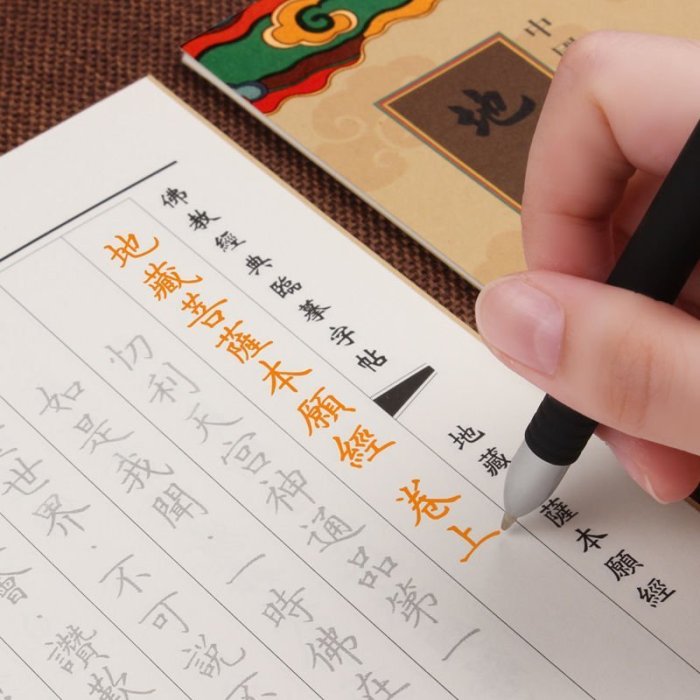 中
地
佛教經典臨摹字帖
地藏薩本願經
地藏菩薩本願經 卷上
忉利天宮神通品第一
如是我聞．一時佛在
世界．不可說不
會．讚歎